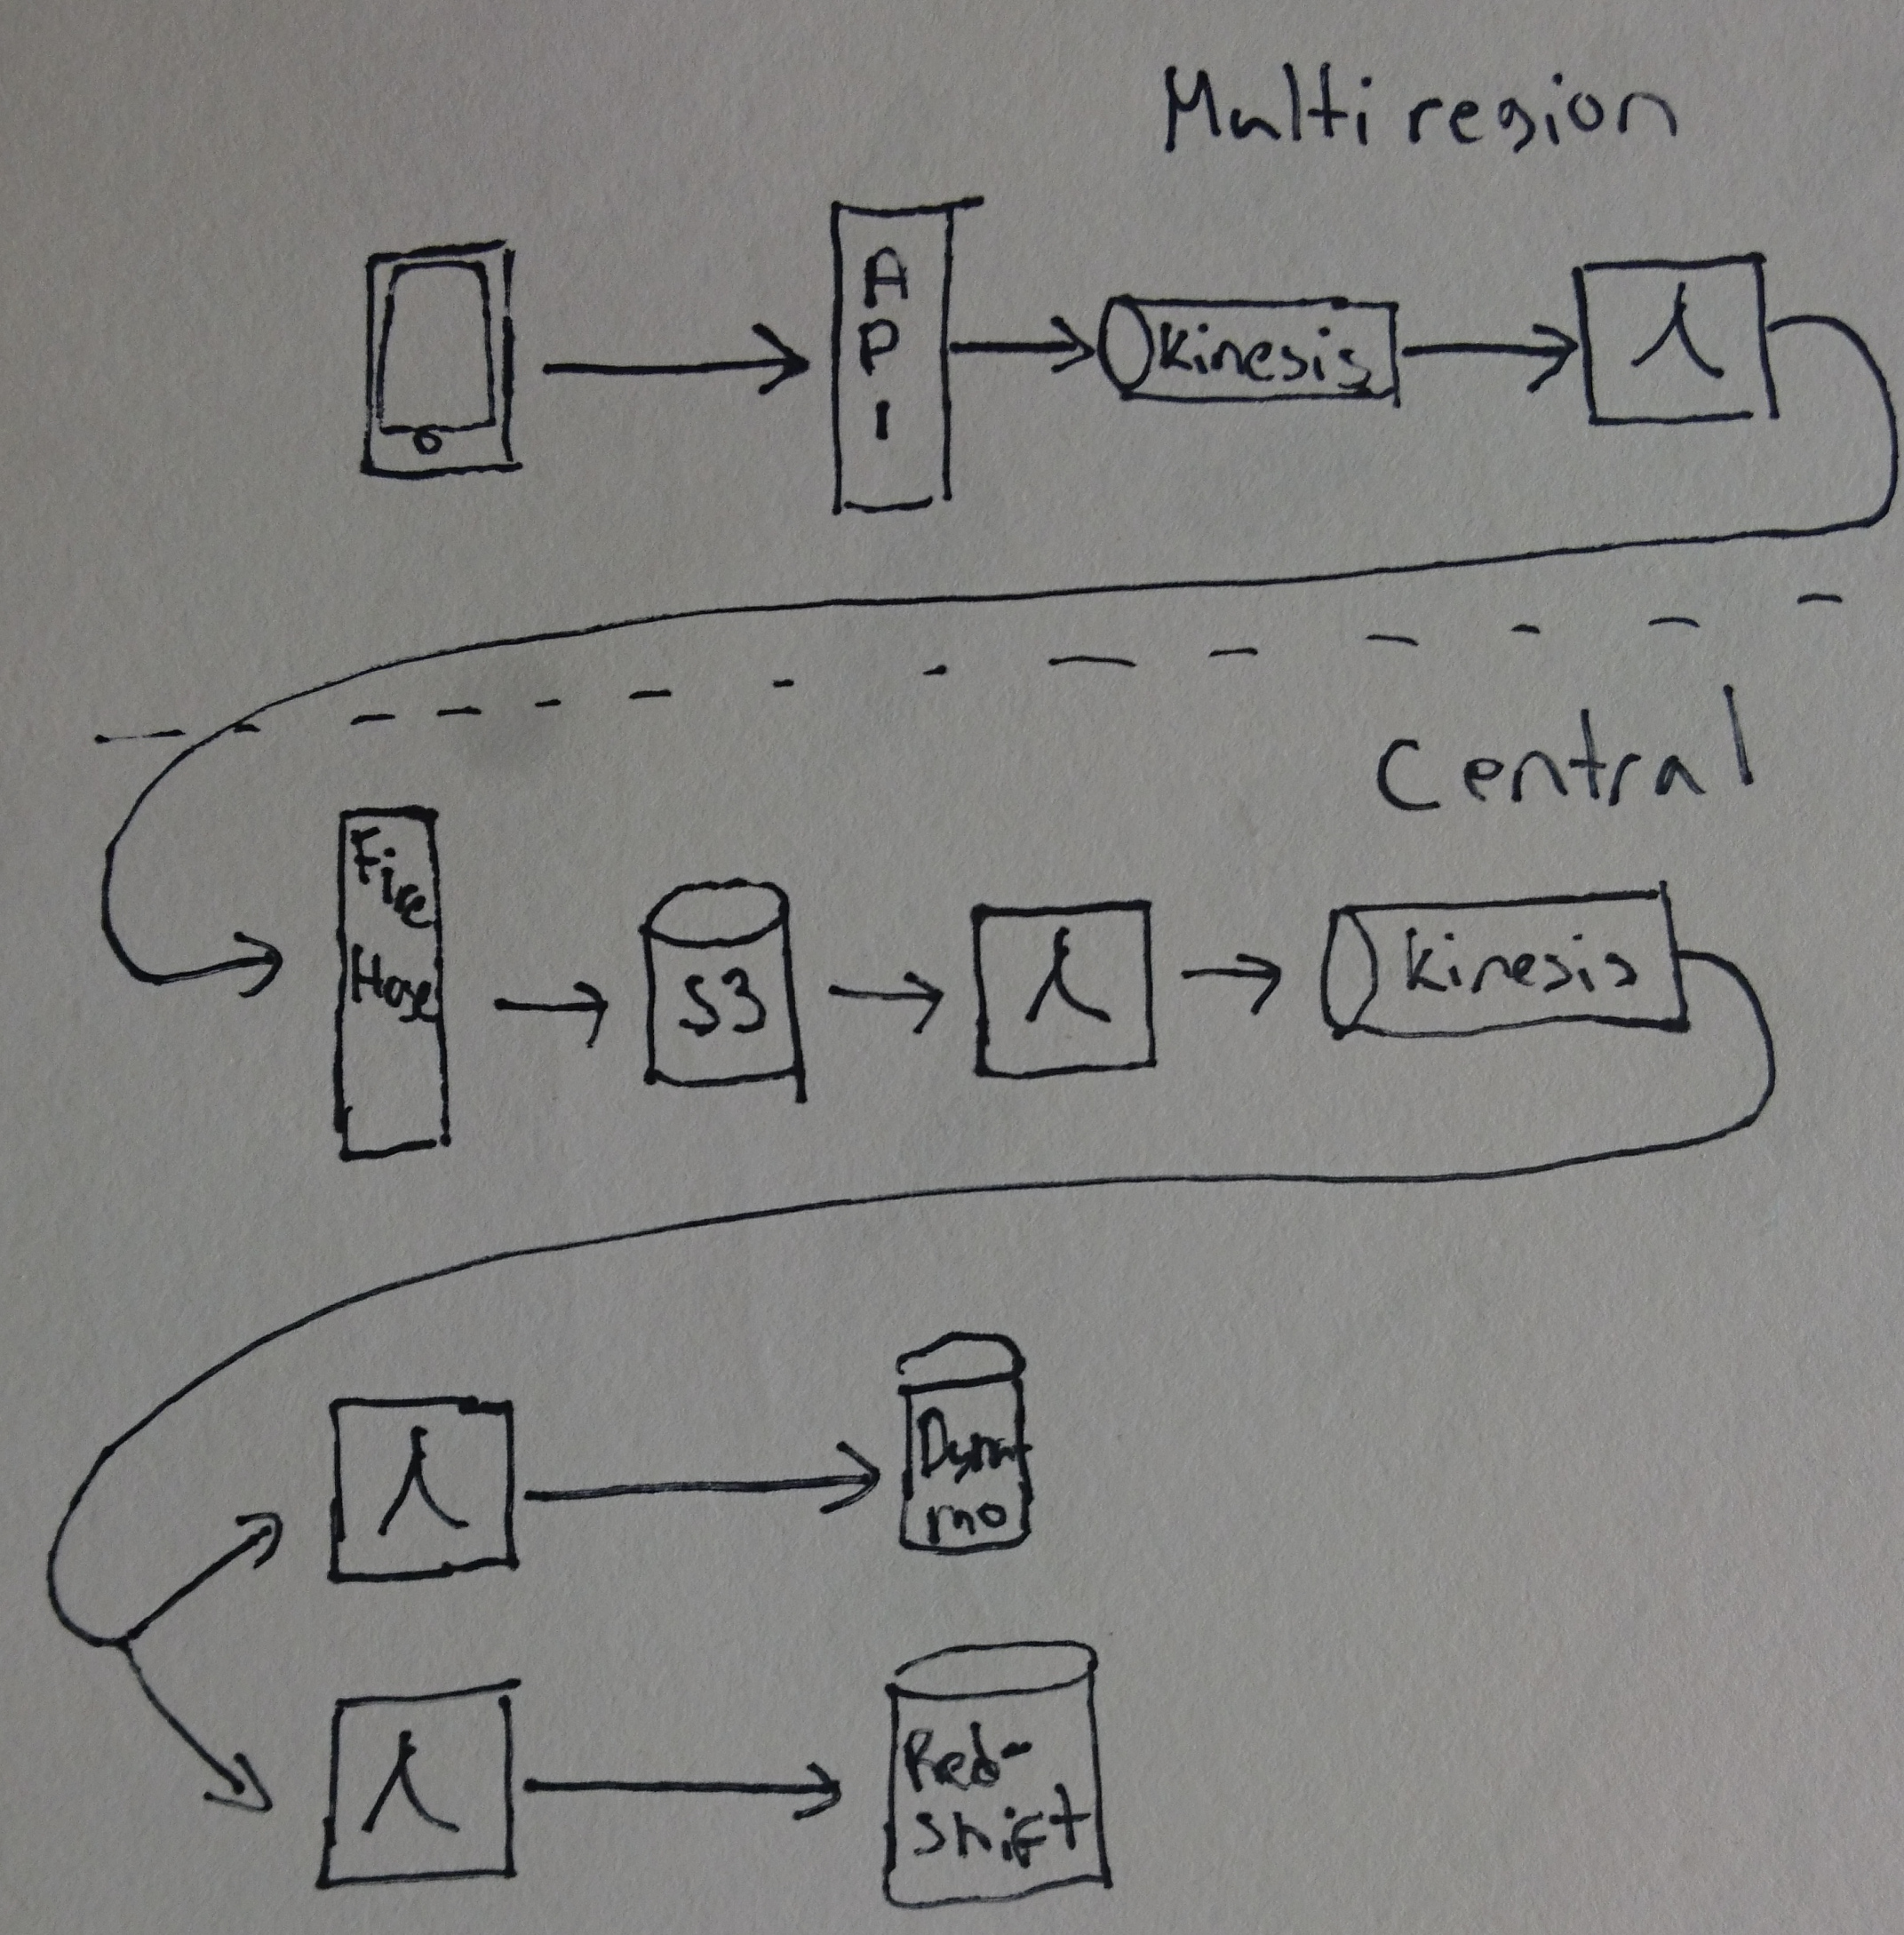 Multi region
A
P
I
Kinesis
λ
Central
Fire
Hose
S3
λ
Kinesis
λ
Dyna
mo
λ
Red-
shift